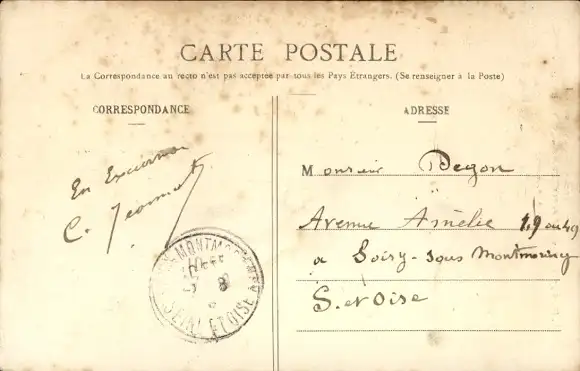 CARTE POSTALE
La Correspondance au recto n'est pas acceptée par tous les Pays Étrangers. (Se renseigner à la Poste)
CORRESPONDANCE
ADRESSE
En Excursion
C.
Monsieur Degon
Avenue Amélie 49 ou 49
a Soisy-sous Montmorency
S. et Oise
MONTMORENCY
SEINE ET OISE